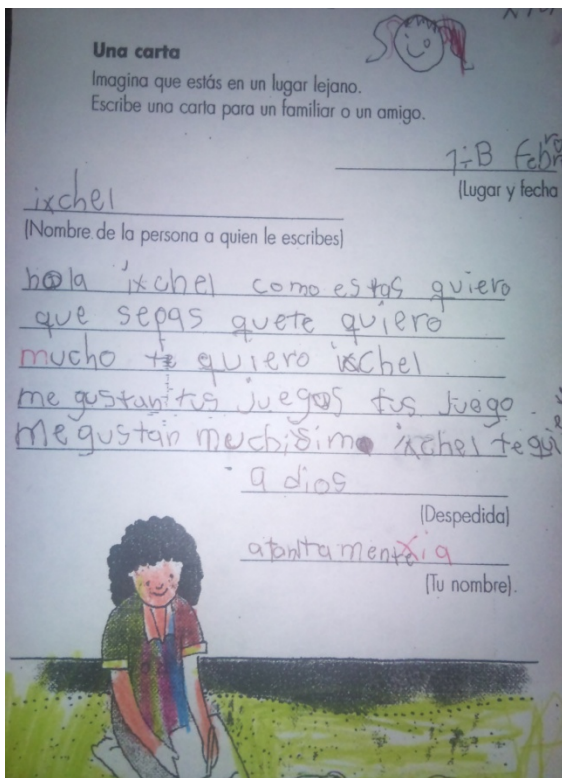 Una carta
Imagina que estás en un lugar lejano.
Escribe una carta para un familiar o un amigo.
(Lugar y fecha
ixchel
(Nombre de la persona a quien le escribes)
hola ixchel como estas quiero
que sepas quete quiero
mucho te quiero ixchel
me gustan tus juegos tus juego
me gustan muchisimo ixchel te qui
a dios
(Despedida)
xia
(Tu nombre).